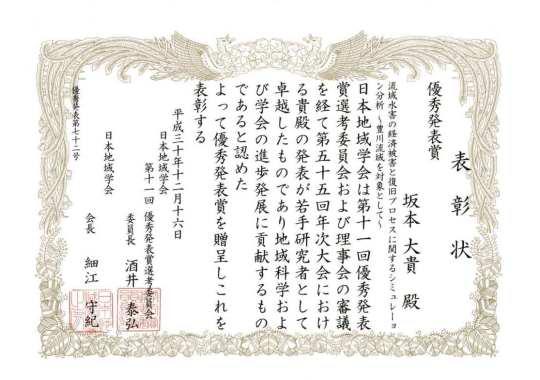 表彰状
坂本 大貴 殿
優秀発表賞
流域水害の経済被害と復旧プロセスに関するシミュレーショ
ン分析 ～豊川流域を対象として～
日本地域学会は第十一回優秀発表
賞選考委員会および理事会の審議
を経て第五十五回年次大会におけ
る貴殿の発表が若手研究者として
卓越したものであり地域科学およ
び学会の進歩発展に貢献するもの
であると認めた
よって優秀発表賞を贈呈しこれを
表彰する
平成三十年十二月十六日
日本地域学会
第十一回 優秀発表賞選考委員会
委員長 酒井 泰弘
日本地域学会
会長 細江 守紀
優秀発表第七十二号